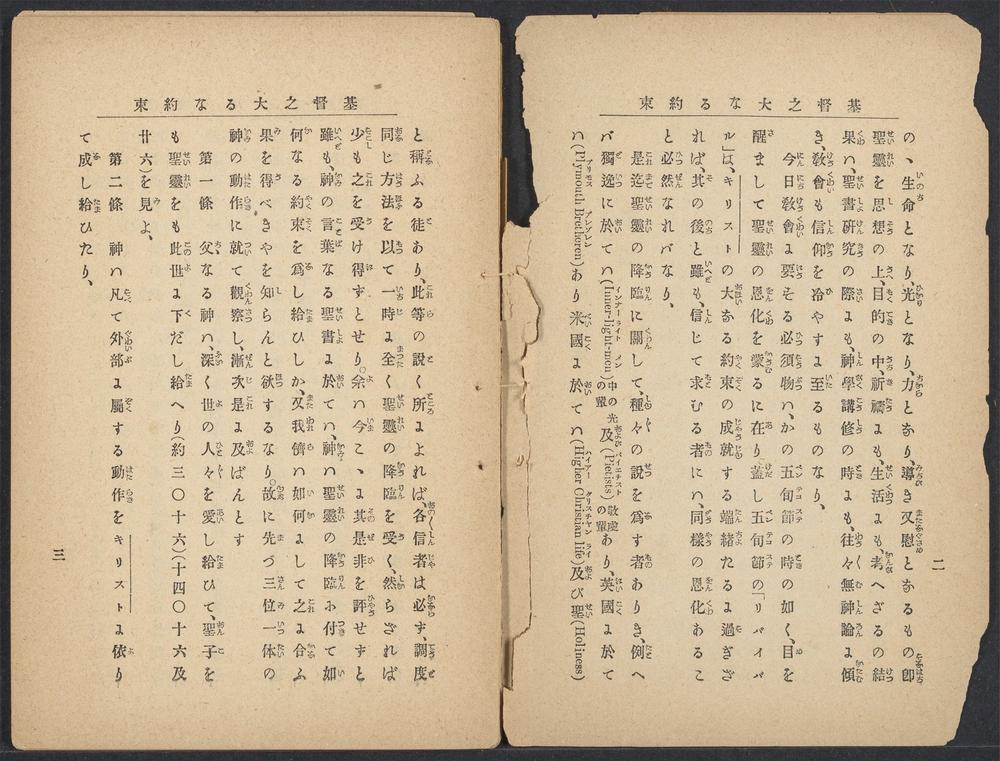 基督之大なる約束
二
の、生命となり、光となり、力、となり、導き又慰となるもの卽
聖靈を思想の上、目的の中、祈禱にも、生活にも、考へざるの結
果ハ聖書研究の際にも、神學講修の時にも、往々無神論に傾
き、敎會も信仰を冷やすに至るものなり、
今日敎會に要する必須物ハ、かの五旬節の時の如く、目を
醒まして聖靈の恩化を蒙るに在り、蓋し五旬節の「リバイバ
ル」は、キリストの大なる約束の成就する端緒たるに過ぎざ
れば、其の後と雖も、信じて求むる者にハ、同樣の恩化あるこ
と必然なれバなり、
是れ迄聖靈の降臨に關して、種々の說を爲す者ありき、例へ
バ獨逸に於てハ(Inner-light-mon)中の光の輩及(Pietists)敬虔の輩あり、英國に於て
ハ(Plymouth Bretheren)あり米國に於てハ(Higher Christian life)及び聖(Holiness)
基督之大る な約束
と稱ふる徒あり、此等の說く所によれば、各信者は必ず、調度
同じ方法を以て一時に全く聖靈の降臨を受く、然らざれば
少も之を受け得ずとせり。余ハ今こゝに其是非を評せずと
雖も、神の言葉なる聖書に於てハ、神ハ聖靈の降臨に付て如
何なる約束を爲し給ひしか、又我儕ハ如何にして之に合ふ
果を得べきやを知らんと欲するなり。故に先づ三位一体の
神の動作に就て觀察し、漸次是に及ばんとす
第一條　父なる神ハ、深く世の人々を愛し給ひて、聖子を
も聖靈をも此世に下だし給へり(約三〇十六)(十四〇十六及
廿六)を見よ、
第二條　神ハ凡て外部に屬する動作をキリストに依り
て成し給ひたり、
三